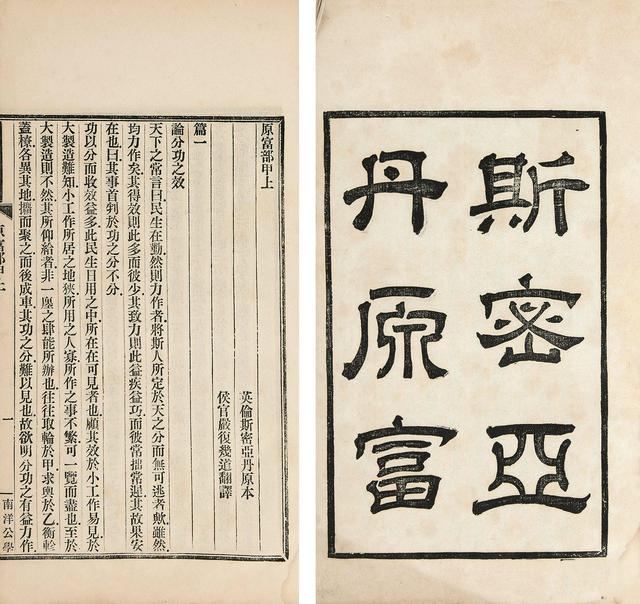 斯密亞
丹原富
原富部甲上
英倫斯密亞丹原本
侯官嚴復幾道翻譯
篇一
論分功之效
天下之常言曰民生在勤然則力作者將斯人所定於天之分而無可逃者歟雖然
均力作矣其得效則此多而彼少其致力則此益疾益巧而彼常拙常遲其故果安
在也曰其事首判於功之分不分
功以分而收效益多此民生日用之中所在在可見者也顧其效於小工作易見於
大製造難知小工作所居之地狹所用之人寡所作之事不繁可一覽而盡也至於
大製造則不然其所仰給者非一廛之肆能所辦也往往取輪於甲求輿於乙衡軫
蓋橑各異其地攢而聚之而後成車其功之分難以見也故欲明分功之有益力作
原富部甲上
一
南洋公學